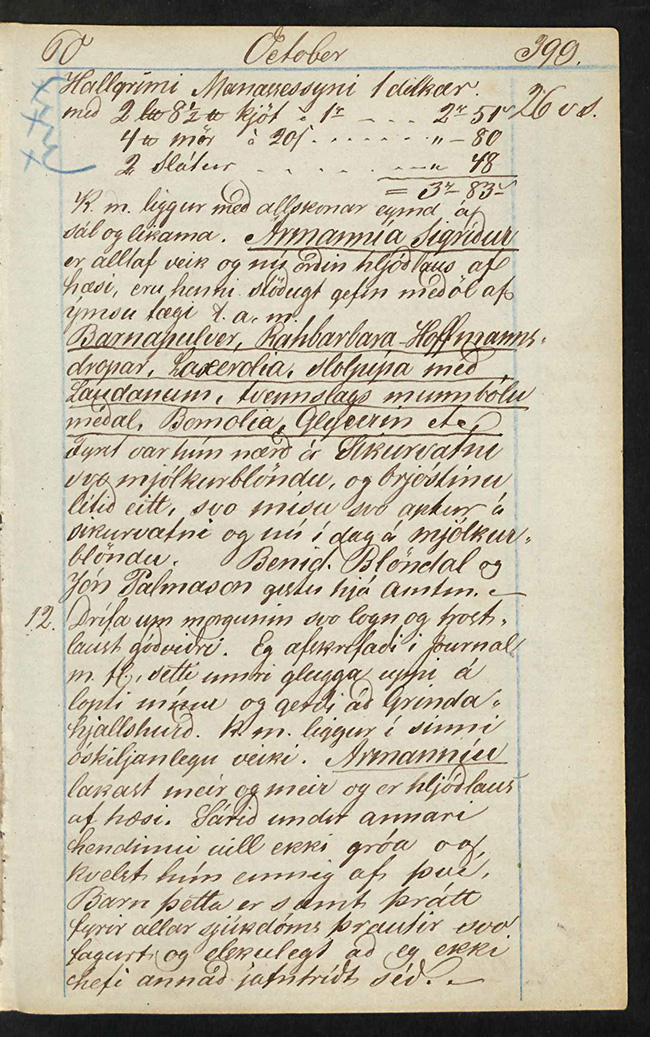 60 October 399.
Hallgrími Manasessyni 1 dilkær.
með 2 lb 8 1/2 lb kjöt á 1r - - - 2r 51s 26 v s.
4 lb mör á 20s - - - - - - „ - 80
2 slátur - - - - - - „ 48
= 3r - 83s
K. m. liggur með allskonar eymd áf
sál og líkama. Armannía Sigríður
er alltaf veik og nú orðin hljóðlaus af
hæsi, eru henni stöðugt gefin meðöl af
ýmsu tægi t. a. m.
Barnapulver, Rahbarbara - Hoffmanns-
dropar, Laxerolia, stolpípa með
Laudanum, tvennslags munnbólu
meðal, Bomolia, Glycerin etc,
Fyrst var hún nærð á Sikurvatni
svo mjólkurblöndu, og brjóstinu
lítið eitt, svo mísu svo aptur á
sikurvatni og nú í dag á mjólkur-
blöndu. Bened. Blöndal og
Jón Pálmason gistu hjá amtm. -
12. Drífa um morgunin svo logn og frost-
laust góðviðri. Eg afskrifaði í Journal
m. fl, setti innri glugga uppi á
lopti mínu og gerði að Grinda-
hjallshurð. K. m. liggur í sinni
óskiljanlegu veiki. Armanníu
lakast meir og meir og er hljóðlaus
af hæsi. Sárið undir annari
hendinni vill ekki gróa og
kvelst hún einnig af því.
Barn þetta er samt þrátt
fyrir allar sjúkdóms þrautir svo
fagurt og elskulegt að eg ekki
hefi annað jafnfrítt séð. -